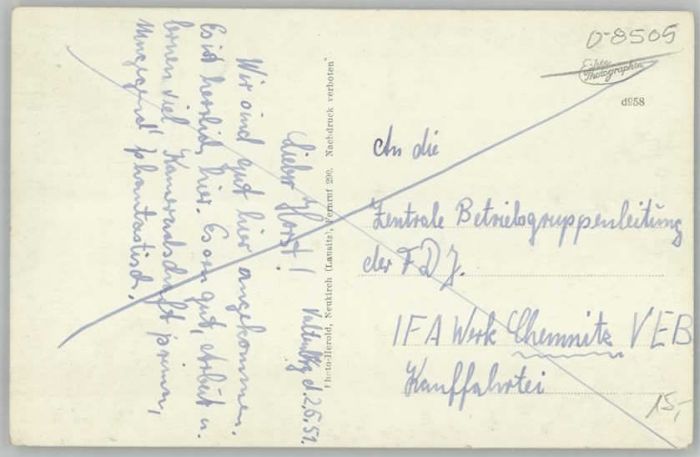 D-8505
Echte Photographie
d958
An die
Zentrale Betriebsgruppenleitung
der FDJ.
IFA Werk Chemnitz VEB
Kauffahrtei
15,-
Photo-Herold, Neukirch (Lausitz), Fernruf 290. Nachdruck verboten
d. 2.6.51.
Lieber Horst!
Wir sind gut hier angekommen.
Es ist herrlich hier. Essen gut, arbeit u.
lernen viel Kameradschaft prima,
phantastisch.